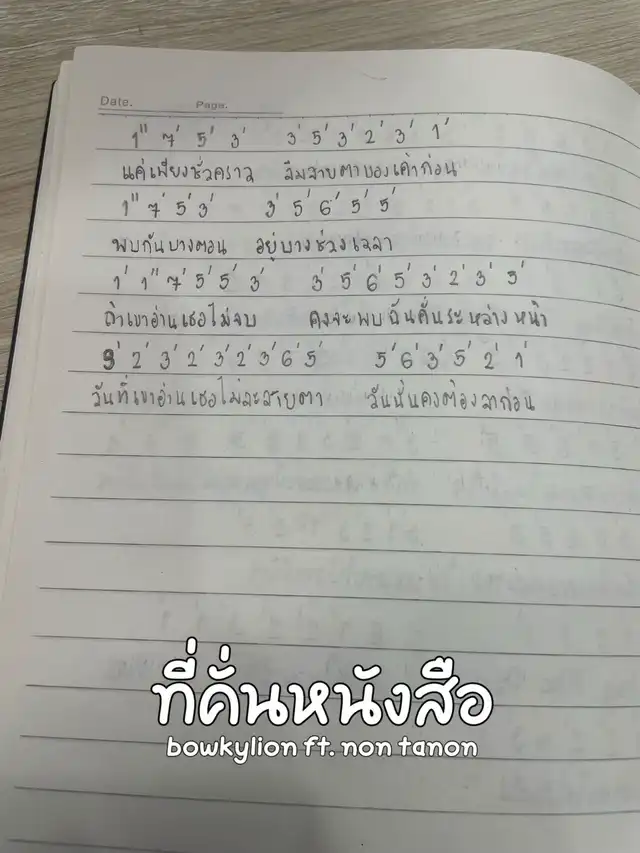 Date. Page.
1" 7' 5' 3' 3' 5' 3' 2' 3' 1'
แค่เพียงชั่วคราว ลืมสายตาของเค้าก่อน
1" 7' 5' 3' 3' 5' 6' 5' 5'
พบกันบางตอน อยู่บางช่วงเวลา
1' 1" 7' 5' 5' 3' 3' 5' 6' 5' 3' 2' 3' 3'
ถ้าเขาอ่านเธอไม่จบ คงจะพบฉันคั่นระหว่างหน้า
3' 2' 3' 2' 3' 2' 3' 6' 5' 5' 6' 3' 5' 2' 1'
วันที่เขาอ่านเธอไม่ละสายตา วันนั้นคงต้องลาก่อน
ที่คั่นหนังสือ
bowkylion ft. non tanon